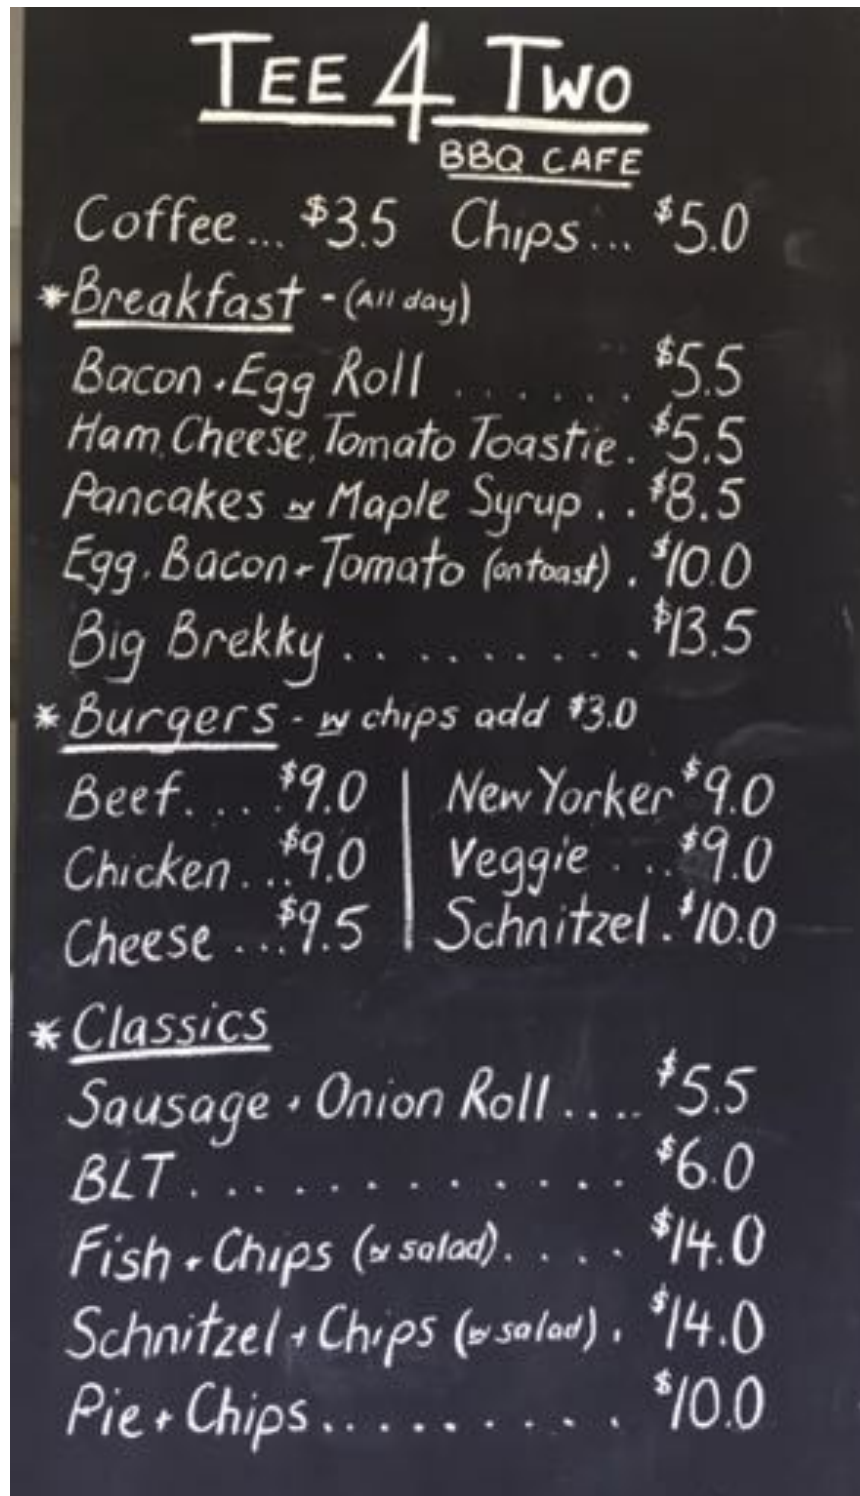 TEE 4 TWO
BBQ CAFE
Coffee... $3.5 Chips... $5.0
*Breakfast - (All day)
Bacon + Egg Roll ...... $5.5
Ham, Cheese, Tomato Toastie . $5.5
Pancakes w Maple Syrup .. $8.5
Egg, Bacon + Tomato (on toast) . $10.0
Big Brekky ......... $13.5
*Burgers - w chips add $3.0
Beef.... $9.0 | New Yorker $9.0
Chicken... $9.0 | Veggie .... $9.0
Cheese ... $9.5 | Schnitzel . $10.0
*Classics
Sausage + Onion Roll .... $5.5
BLT ............ $6.0
Fish + Chips (w salad).... $14.0
Schnitzel + Chips (w salad) . $14.0
Pie + Chips ......... $10.0